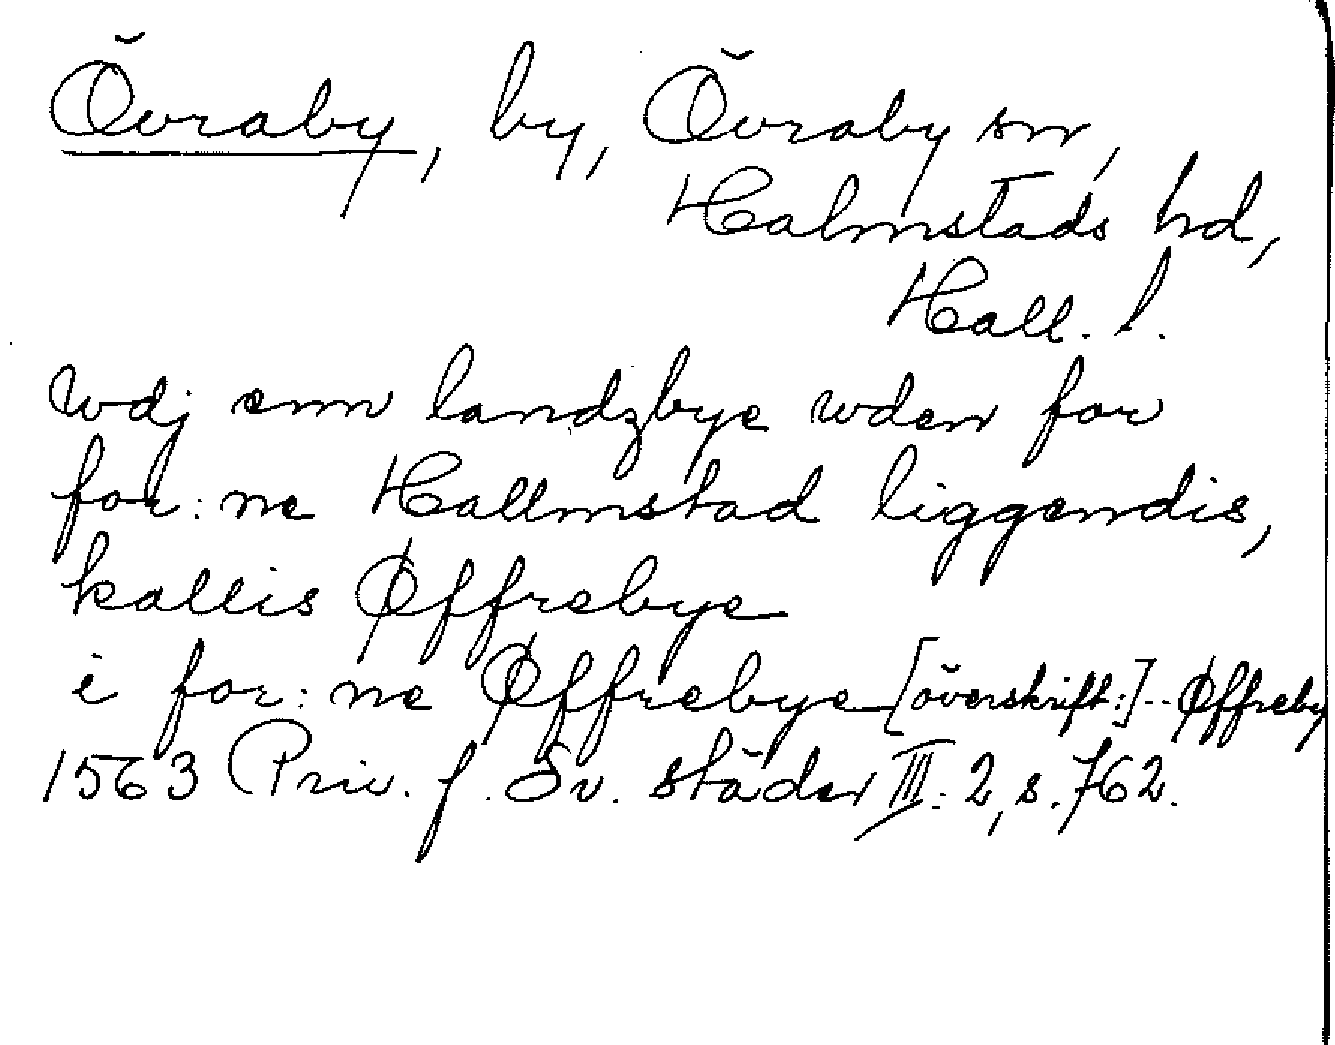 Övraby, by, Övraby sn,
Halmstads hd,
Hall. l.
wdj enn landzbye wden for
for: ne Hallmstad liggendis,
kallis Øffrebye
i for: ne Øffrebye [överskrift:]-- Øffreby
1563 Priv. f. Sv. städer III: 2, s. 762.